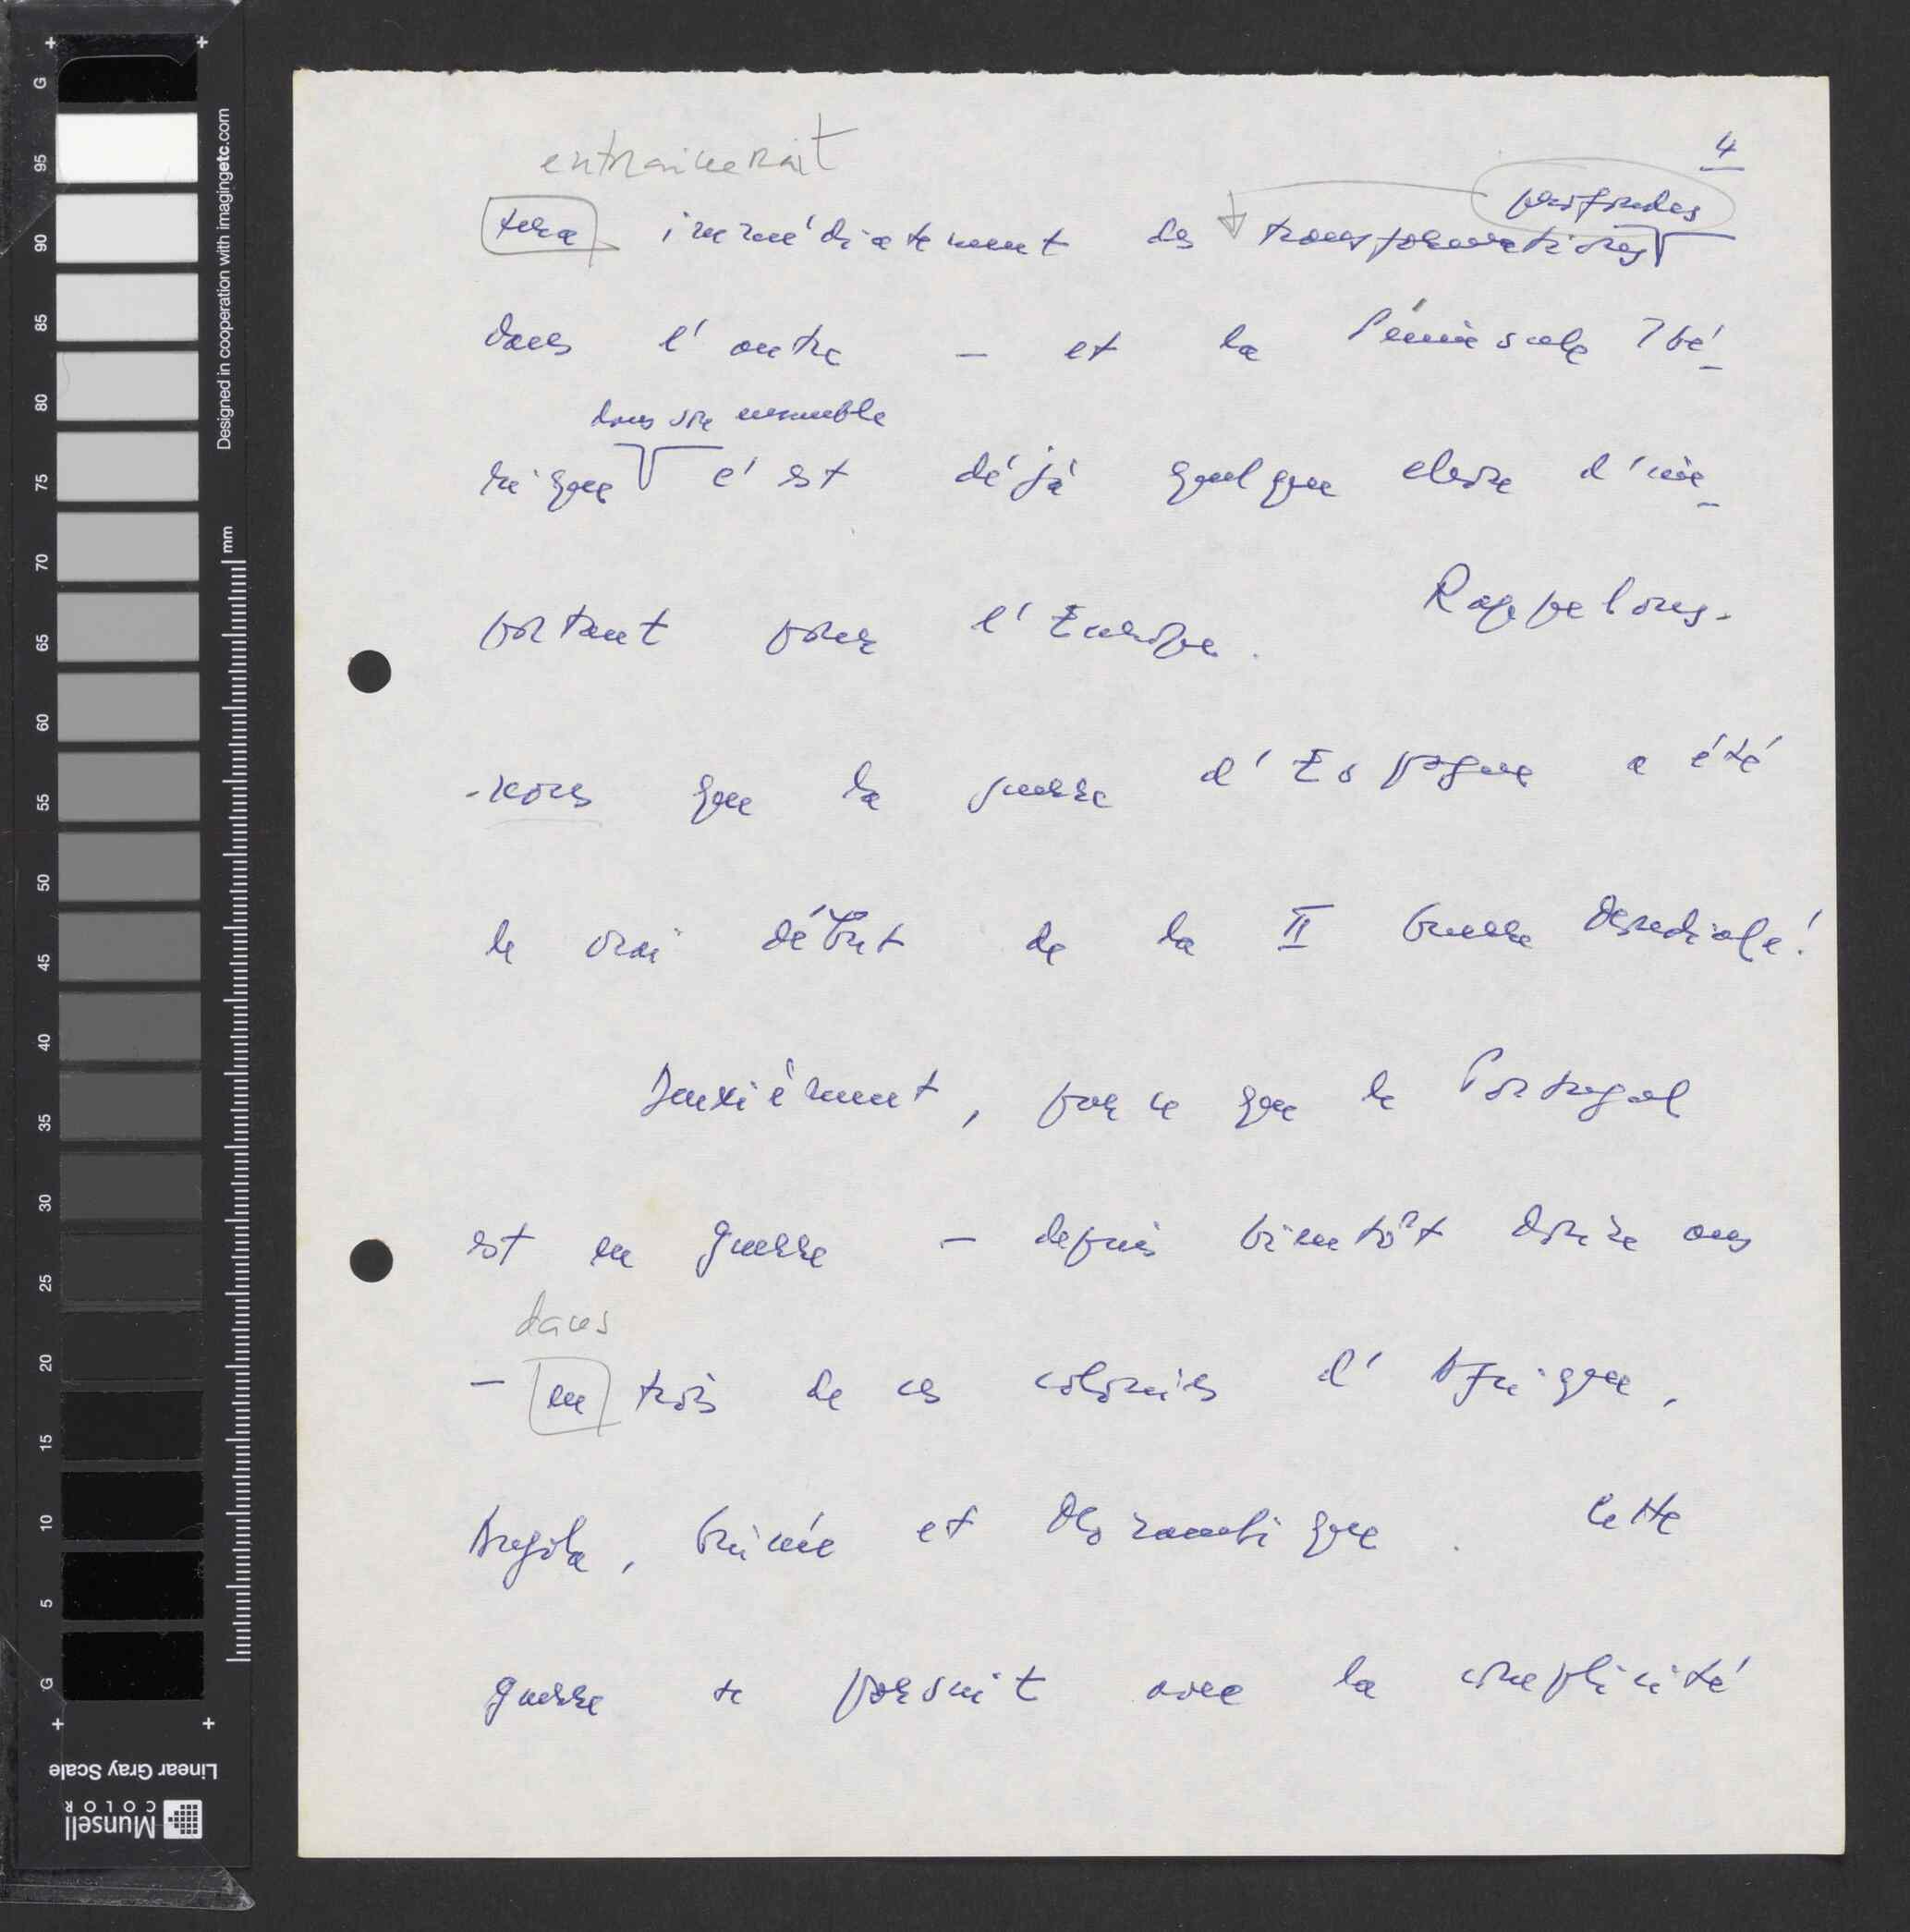 4
entrainerait
profondes
fera immédiatement des transformations
dans l'autre — et la Péninsule Ibé-
dans son ensemble
rique c'est déjà quelque chose d'im-
portant pour l'Europe. Rappelons-
-nous que la guerre d'Espagne a été
le vrai début de la II Guerre Mondiale!
Deuxièment, parce que le Portugal
est en guerre — depuis bientôt douze ans
dans
— en trois de ces colonies d'Afrique,
Angola, Guinée et Mozambique. Cette
guerre se porsuit avec la complicité
G 95 90 85 80 75 70 65 60 55 50 45 40 35 30 25 20 15 10 5 G
Designed in cooperation with imagingetc.com
mm
Linear Gray Scale
Munsell
COLOR